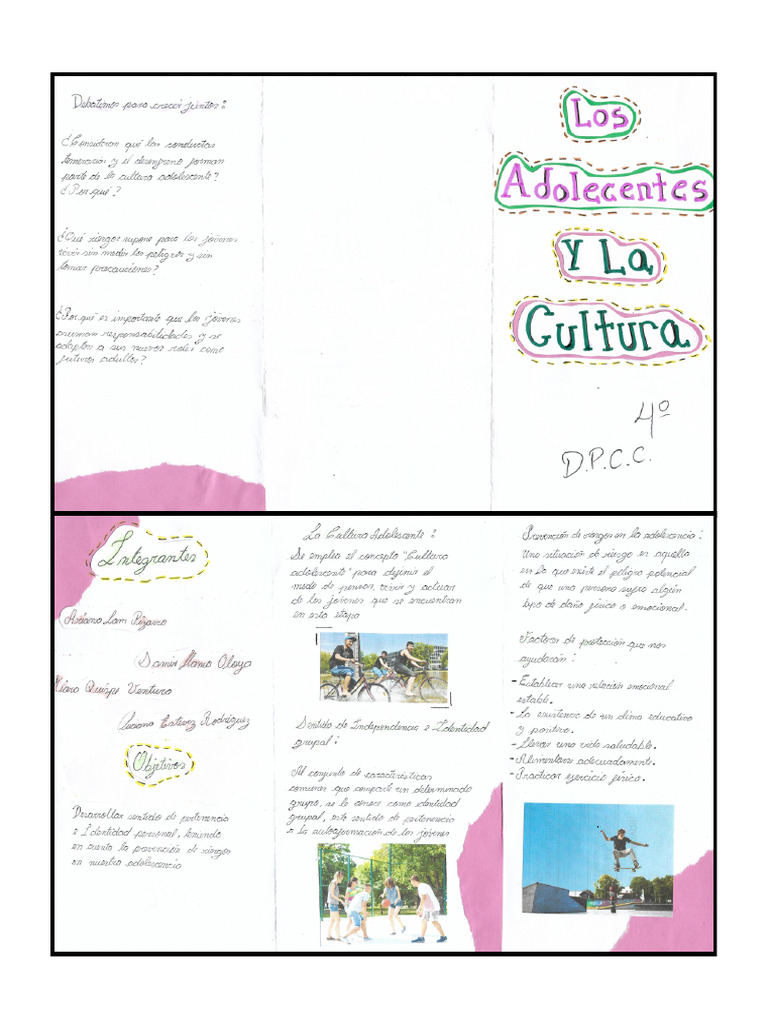 Debatamos para crecer juntos:
¿Consideran qué las conductas
temerarias y el desenfreno forman
parte de la cultura adolescente?
¿Por qué?
¿Qué riesgos supone para los jóvenes
vivir sin medir los peligros y sin
tomar precauciones?
¿Por qué es importante que los jóvenes
asuman responsabilidades y se
adapten a sus nuevos roles como
futuros adultos?
Los
Adolecentes
Y La
Cultura
4º
D.P.C.C.
Integrantes
Adriano Lam Pizarro
Samir Mamo Oloya
Kiara Quispe Ventura
Luciana Estevez Rodriguez
Objetivos
Desarrollar sentido de pertenencia
e Identidad personal, teniendo
en cuenta la prevención de riesgos
en nuestra adolescencia
La Cultura Adolescente:
Se emplea el concepto "Cultura
adolescente" para definir el
modo de pensar, vivir y actuar
de los jóvenes que se encuentran
en esta etapa
Sentido de Independencia e Identidad
grupal:
Al conjunto de características
comunes que comparte un determinado
grupo, se le conoce como identidad
grupal, este sentido de pertenencia
a la autoafirmación de los jóvenes
Prevención de riesgos en la adolescencia:
Una situación de riesgo es aquella
en la que existe el peligro potencial
de que una persona sufra algún
tipo de daño físico o emocional.
Factores de protección que nos
ayudarán:
- Establecer una relación emocional
estable.
- La existencia de un clima educativo
y positivo.
- Llevar una vida saludable.
- Alimentarse adecuadamente.
- Practicar ejercicio físico.